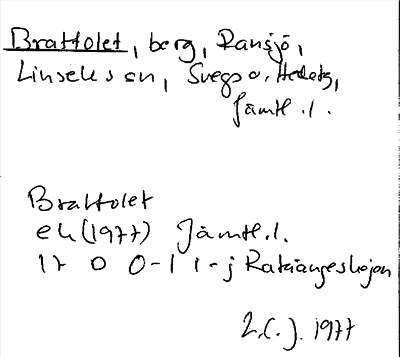 Brattolet, berg, Ransjö,
Linsells sn, Svegs o. Hedets,
Jämtl. l.
Brattolet
ek (1977) Jämtl. l.
17 D 0-1 i-j Rätansbyn
2.(.). 1977